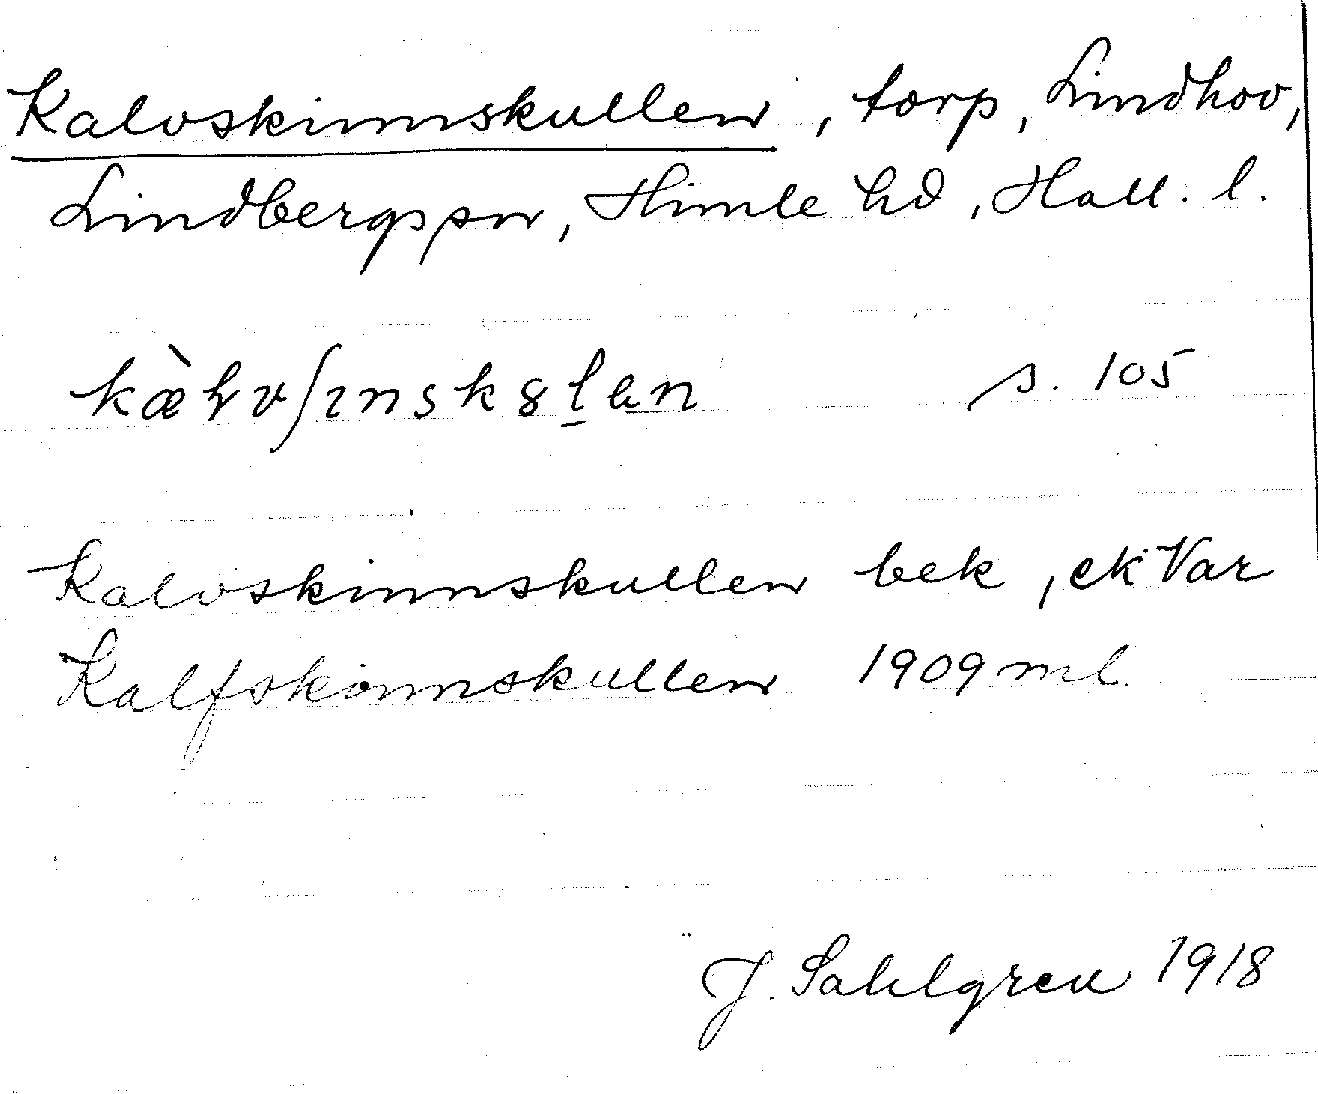 Kalvskinnskullen, torp, Lindhov,
Lindbergs sn, Himle hd, Hall. l.
s. 105
Kalvskinnskullen bek, ekVar
Kalfskinnskullen 1909 ml.
J. Sahlgren 1918